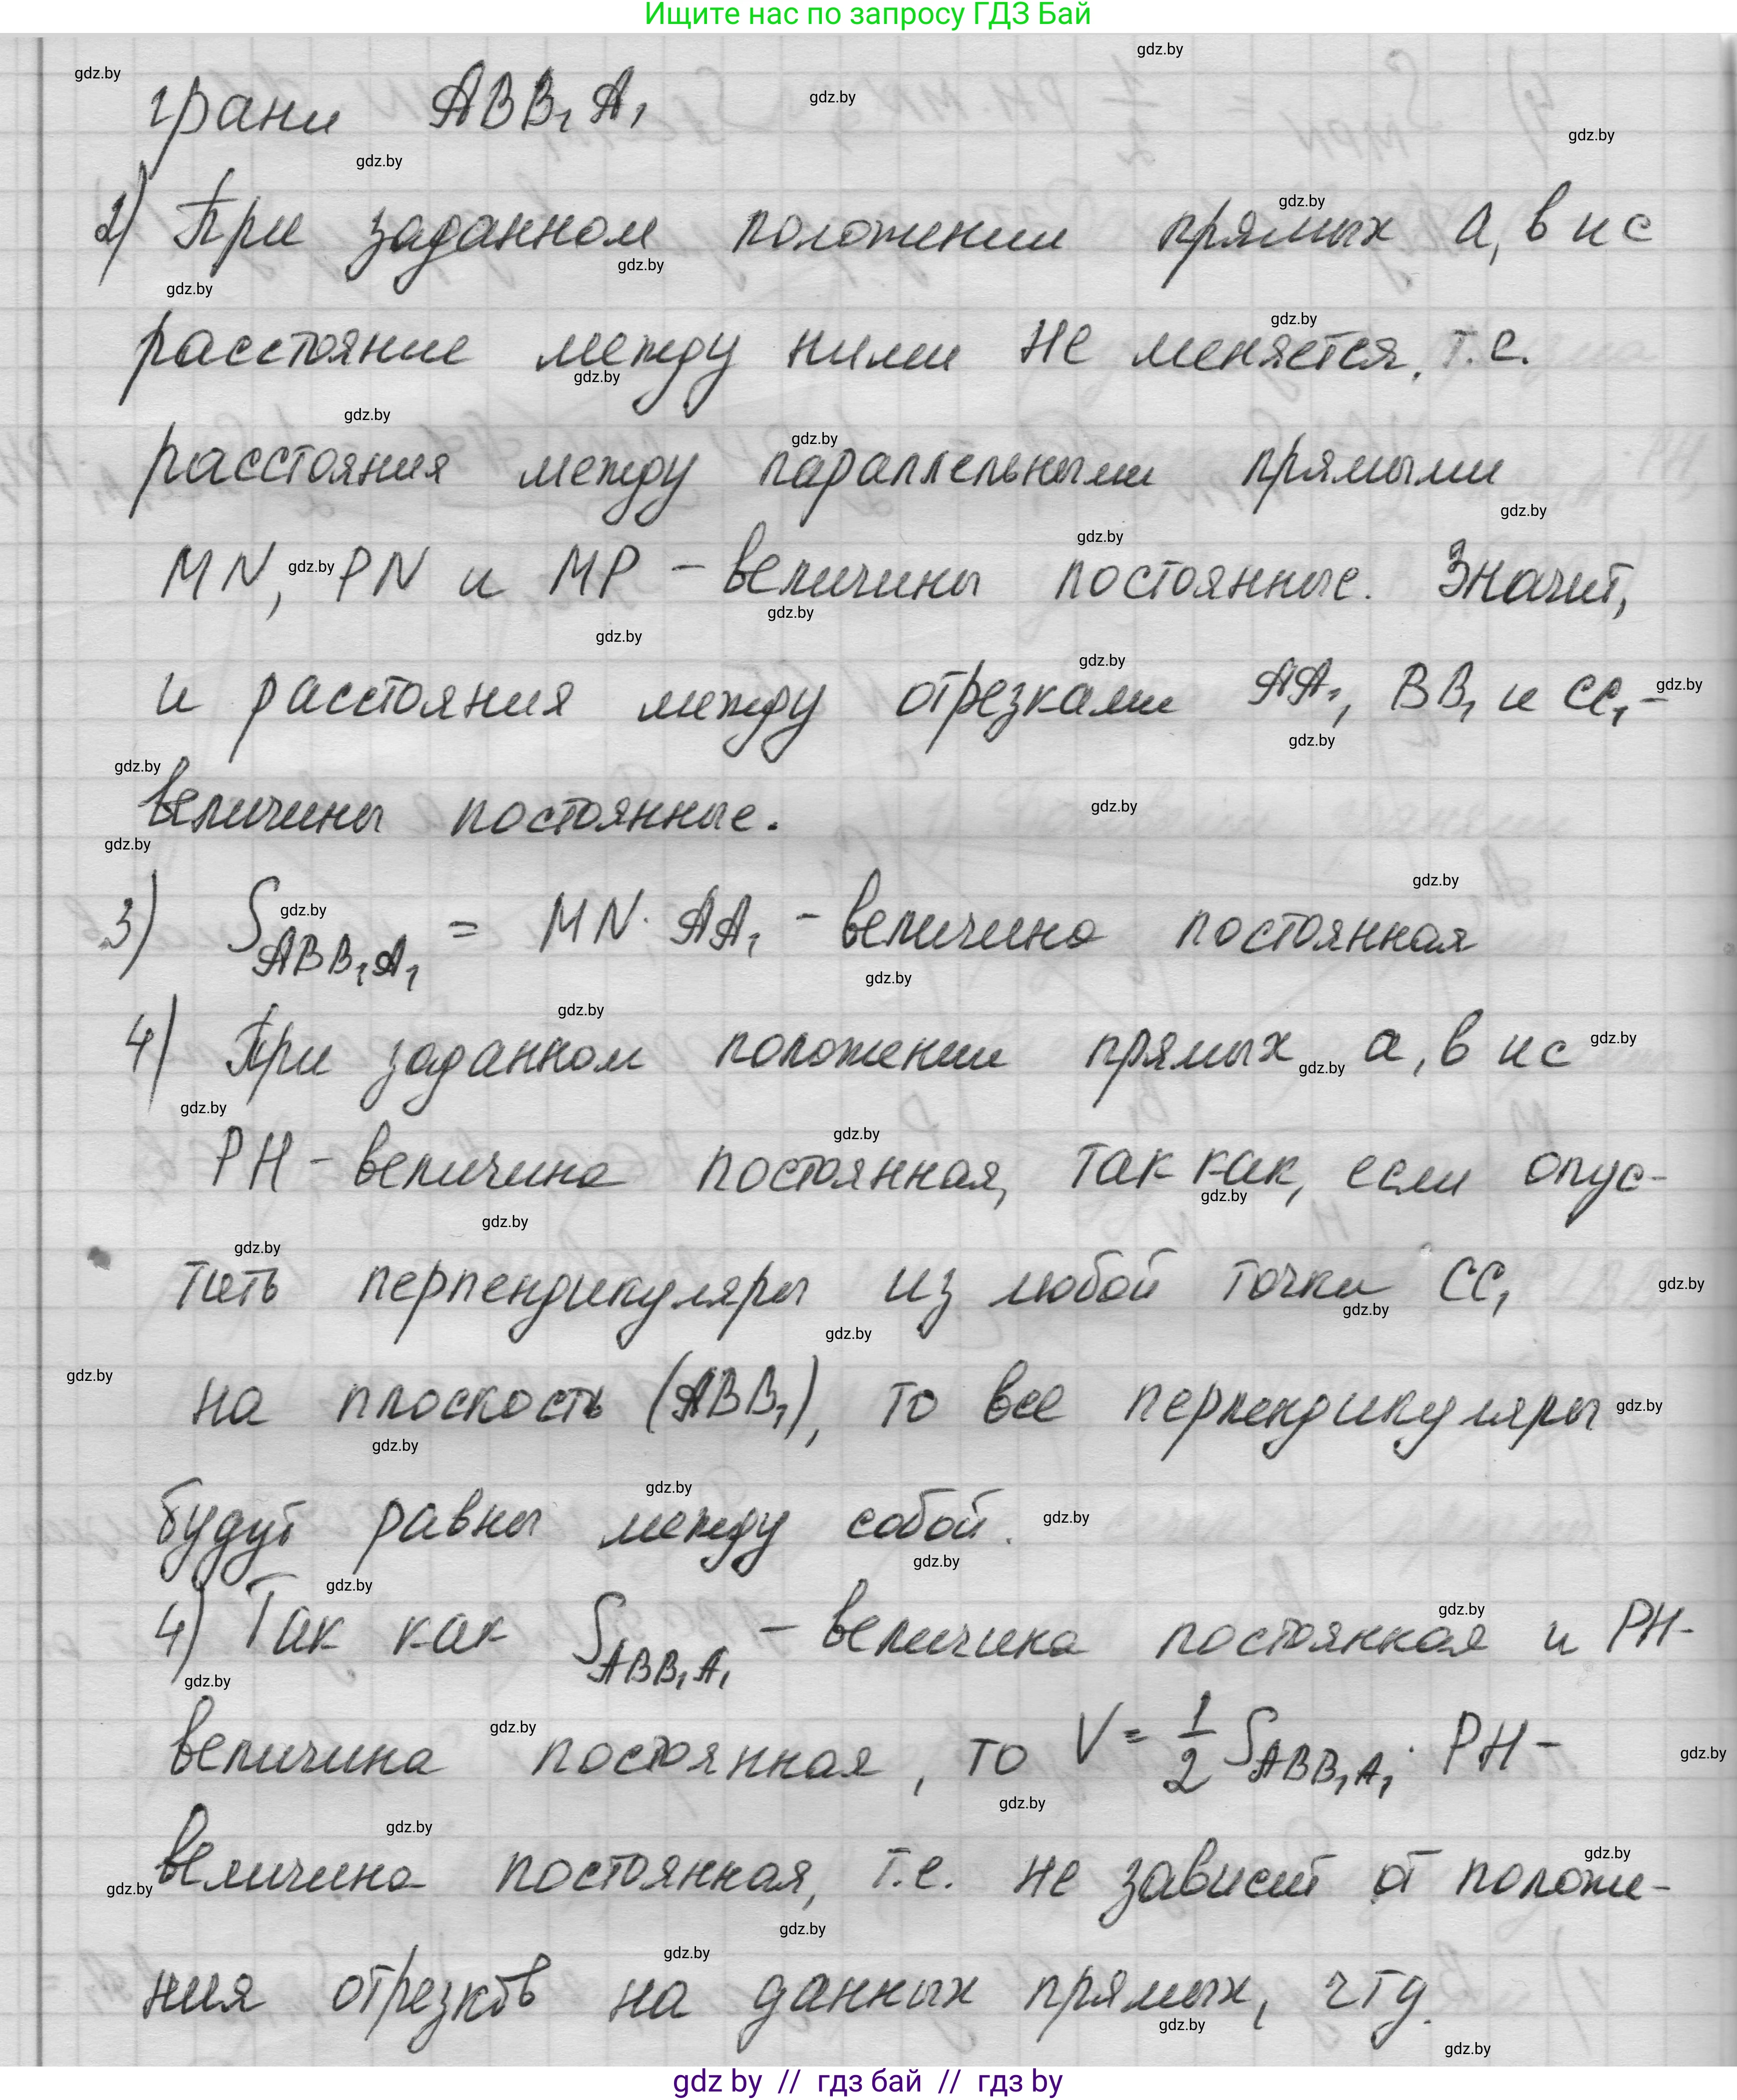 Ищите нас по запросу ГДЗ Бай
грани ABB₁A₁
2) При заданном положении прямых a, b и c
расстояние между ними не меняется, т.е.
расстояния между параллельными прямыми
MN, PN и MP – величины постоянные. Значит,
и расстояния между отрезками AA₁, BB₁ и CC₁ –
величины постоянные.
3) S_ABB₁A₁ = MN · AA₁ – величина постоянная
4) При заданном положении прямых a, b и c
PH – величина постоянная, так как, если опус-
тить перпендикуляры из любой точки CC₁
на плоскость (ABB₁), то все перпендикуляры
будут равны между собой.
4) Так как S_ABB₁A₁ – величина постоянная и PH –
величина постоянная, то V = 1/2 S_ABB₁A₁ · PH –
величина постоянная, т.е. не зависит от положе-
ния отрезков на данных прямых, чтд.
gdz by // гдз бай // гдз by